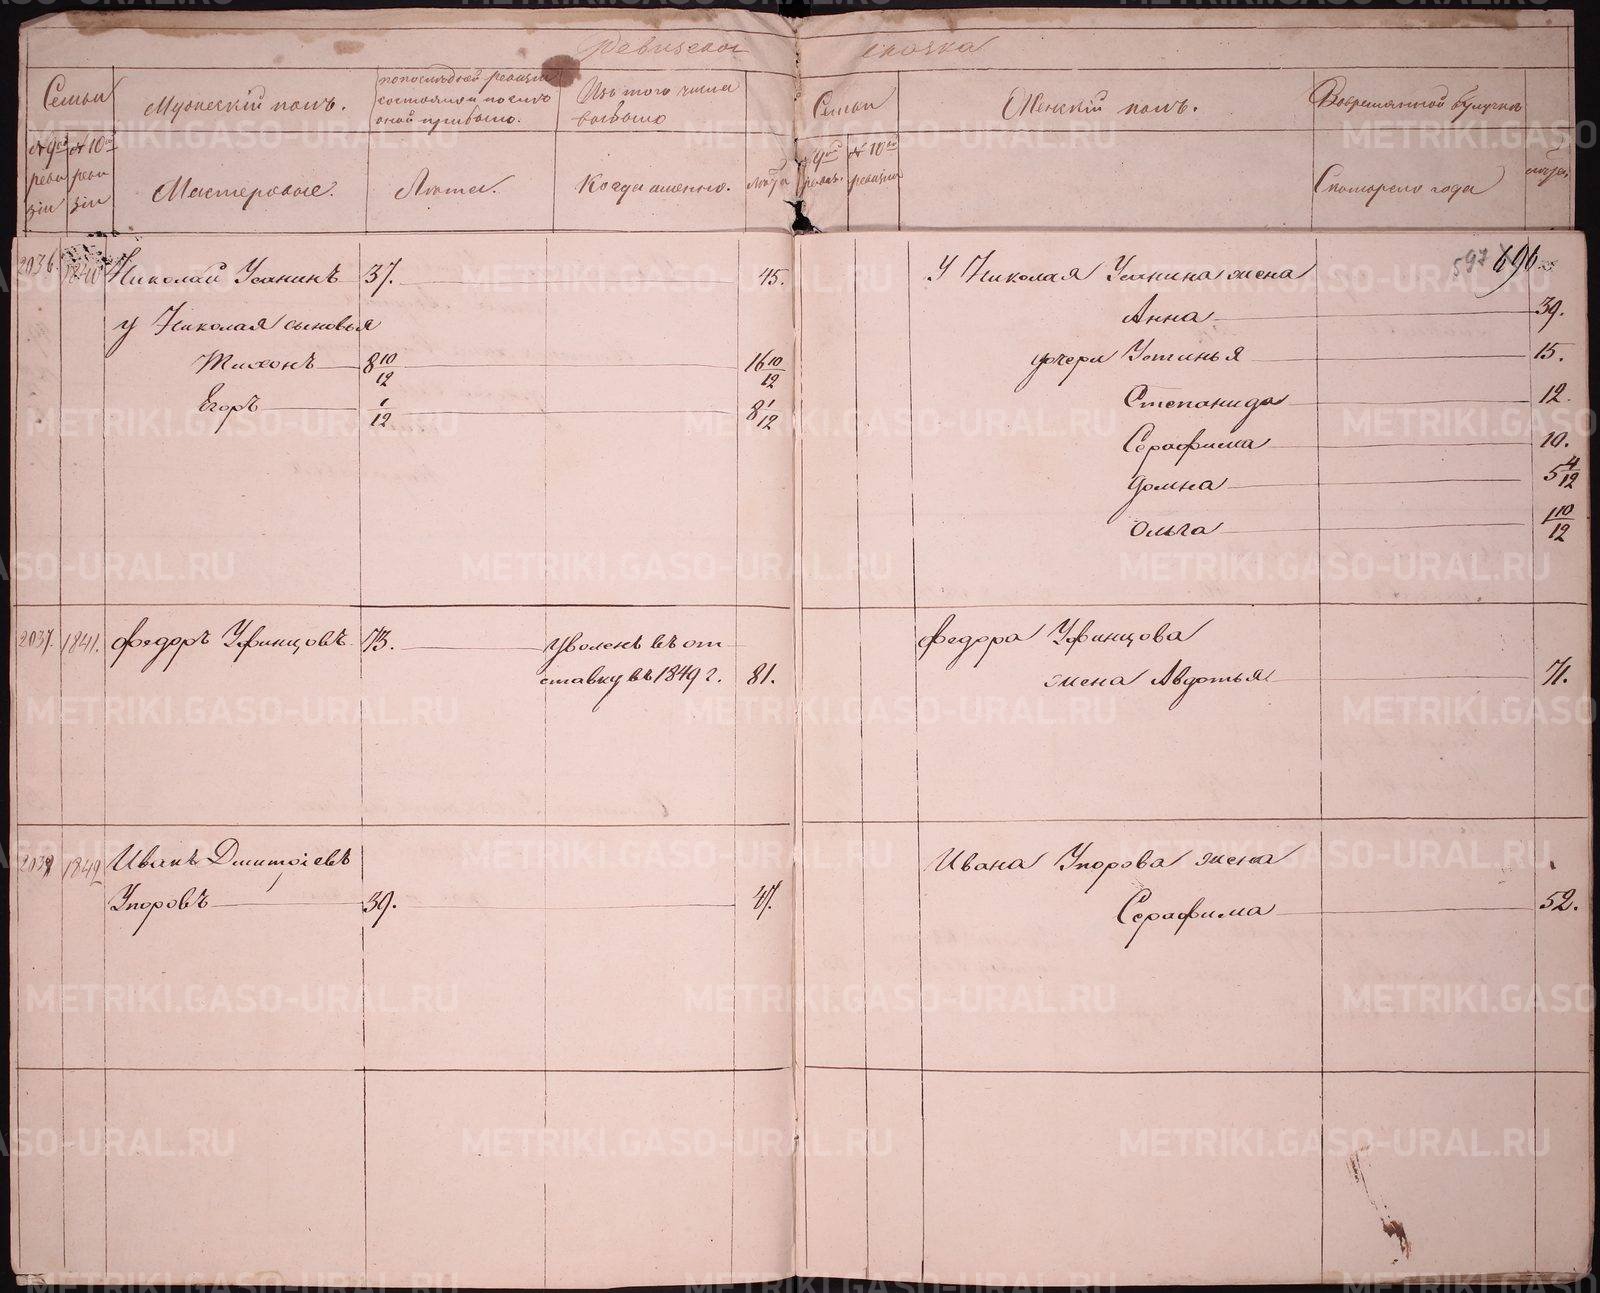 Ревизская сказка
Семьи
Мужескій полъ.
по последней ревизіи состояло и после оной прибыло.
Изъ того числа выбыло
Семьи
Женскій полъ.
Во временной отлучке
№ 9ой ревизіи
№ 10ой ревизіи
Мастеровые.
Лета.
Когда именно.
Лета
№ 9ой ревиз.
№ 10ой ревизіи
Скотораго года
лета
597 696
2036. 1840 Николай Усанинъ 37. 45.
у Николая сыновья
Тихонъ 8 10/12 16 10/12
Егоръ 1/12 8 1/12
У Николая Усанина жена
Анна 39.
дочери Устинья 15.
Степанида 12.
Серафима 10.
Домна 5 4/12
Ольга 1 10/12
2037. 1841. Федоръ Уфинцовъ 73. уволенъ въ от
ставку въ 1849 г. 81.
Федора Уфинцова
жена Авдотья 71.
1842 Иванъ Дмитріевъ
Упоровъ 39. 47.
Ивана Упорова жена
Серафима 52.
METRIKI.GASO-URAL.RU